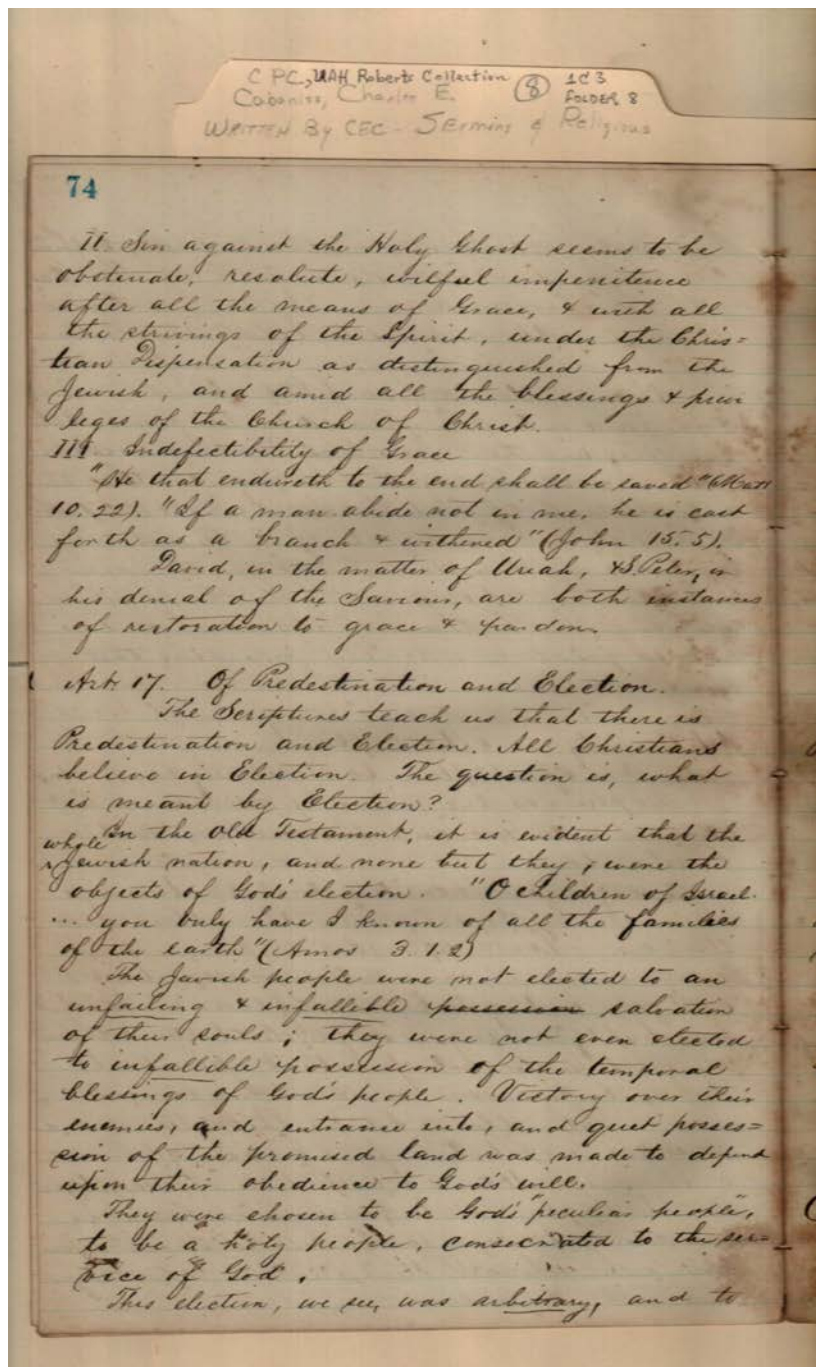 C PC, UAH Roberts Collection (8) 1C3
Cabaniss, Charles E. FOLDER 8
WRITTEN By CEC - SErmins & Religious
74
II Sin against the Holy Ghost seems to be
obstinate, resolute, wilful impenitence
after all the means of Grace, & with all
the strivings of the Spirit, under the Chris=
tian Dispensation as distinguished from the
Jewish, and amid all the blessings & privi
leges of the Church of Christ.
III Indefectibility of Grace
"He that endureth to the end shall be saved" (Matt
10.22). "If a man abide not in me, he is cast
forth as a branch & withered" (John 15.5).
David, in the matter of Uriah, & S. Peter, in
his denial of the Saviour, are both instances
of restoration to grace & pardon.
Art. 17. Of Predestination and Election.
The Scriptures teach us that there is
Predestination and Election. All Christians
believe in Election. The question is, what
is meant by Election?
In the Old Testament, it is evident that the
whole Jewish nation, and none but they, were the
objects of God's election. "O children of Israel.
... you only have I known of all the families
of the earth" (Amos 3.1.2)
The Jewish people were not elected to an
unfailing & infallible possession salvation
of their souls; they were not even elected
to infallible possession of the temporal
blessings of God's people. Victory over their
enemies, and entrance into, and quiet posses=
sion of the promised land was made to depend
upon their obedience to God's will.
They were chosen to be God's "peculiar people",
to be a holy people, consecrated to the ser=
vice of God.
This election, we see, was arbitrary, and to